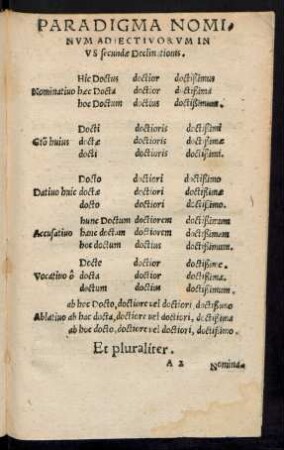 PARADIGMA NOMI-
NVM ADIECTIVORVM IN
VS secundæ Declinationis.
Hic Doctus doctior doctißimus
Nominatiuo hæc Docta doctior doctißima
hoc Doctum doctius doctißimum.
Docti doctioris doctißimi
Gtõ huius doctæ doctioris doctißimæ
docti doctioris doctißimi.
Docto doctiori doctißimo
Datiuo huic doctæ doctiori doctißimæ
docto doctiori doctißimo.
hunc Doctum doctiorem doctißimum
Accusatiuo hanc doctam doctiorem doctißimam
hoc doctum doctius doctißimum.
Docte doctior doctißime.
Vocatiuo ô docta doctior doctißima.
doctum doctius doctißimum.
ab hoc Docto, doctiore uel doctiori, doctißimo
Ablatiuo ab hac docta, doctiore uel doctiori, doctißima
ab hoc docto, doctiore uel doctiori, doctißimo.
Et pluraliter.
A 2 Nomina-